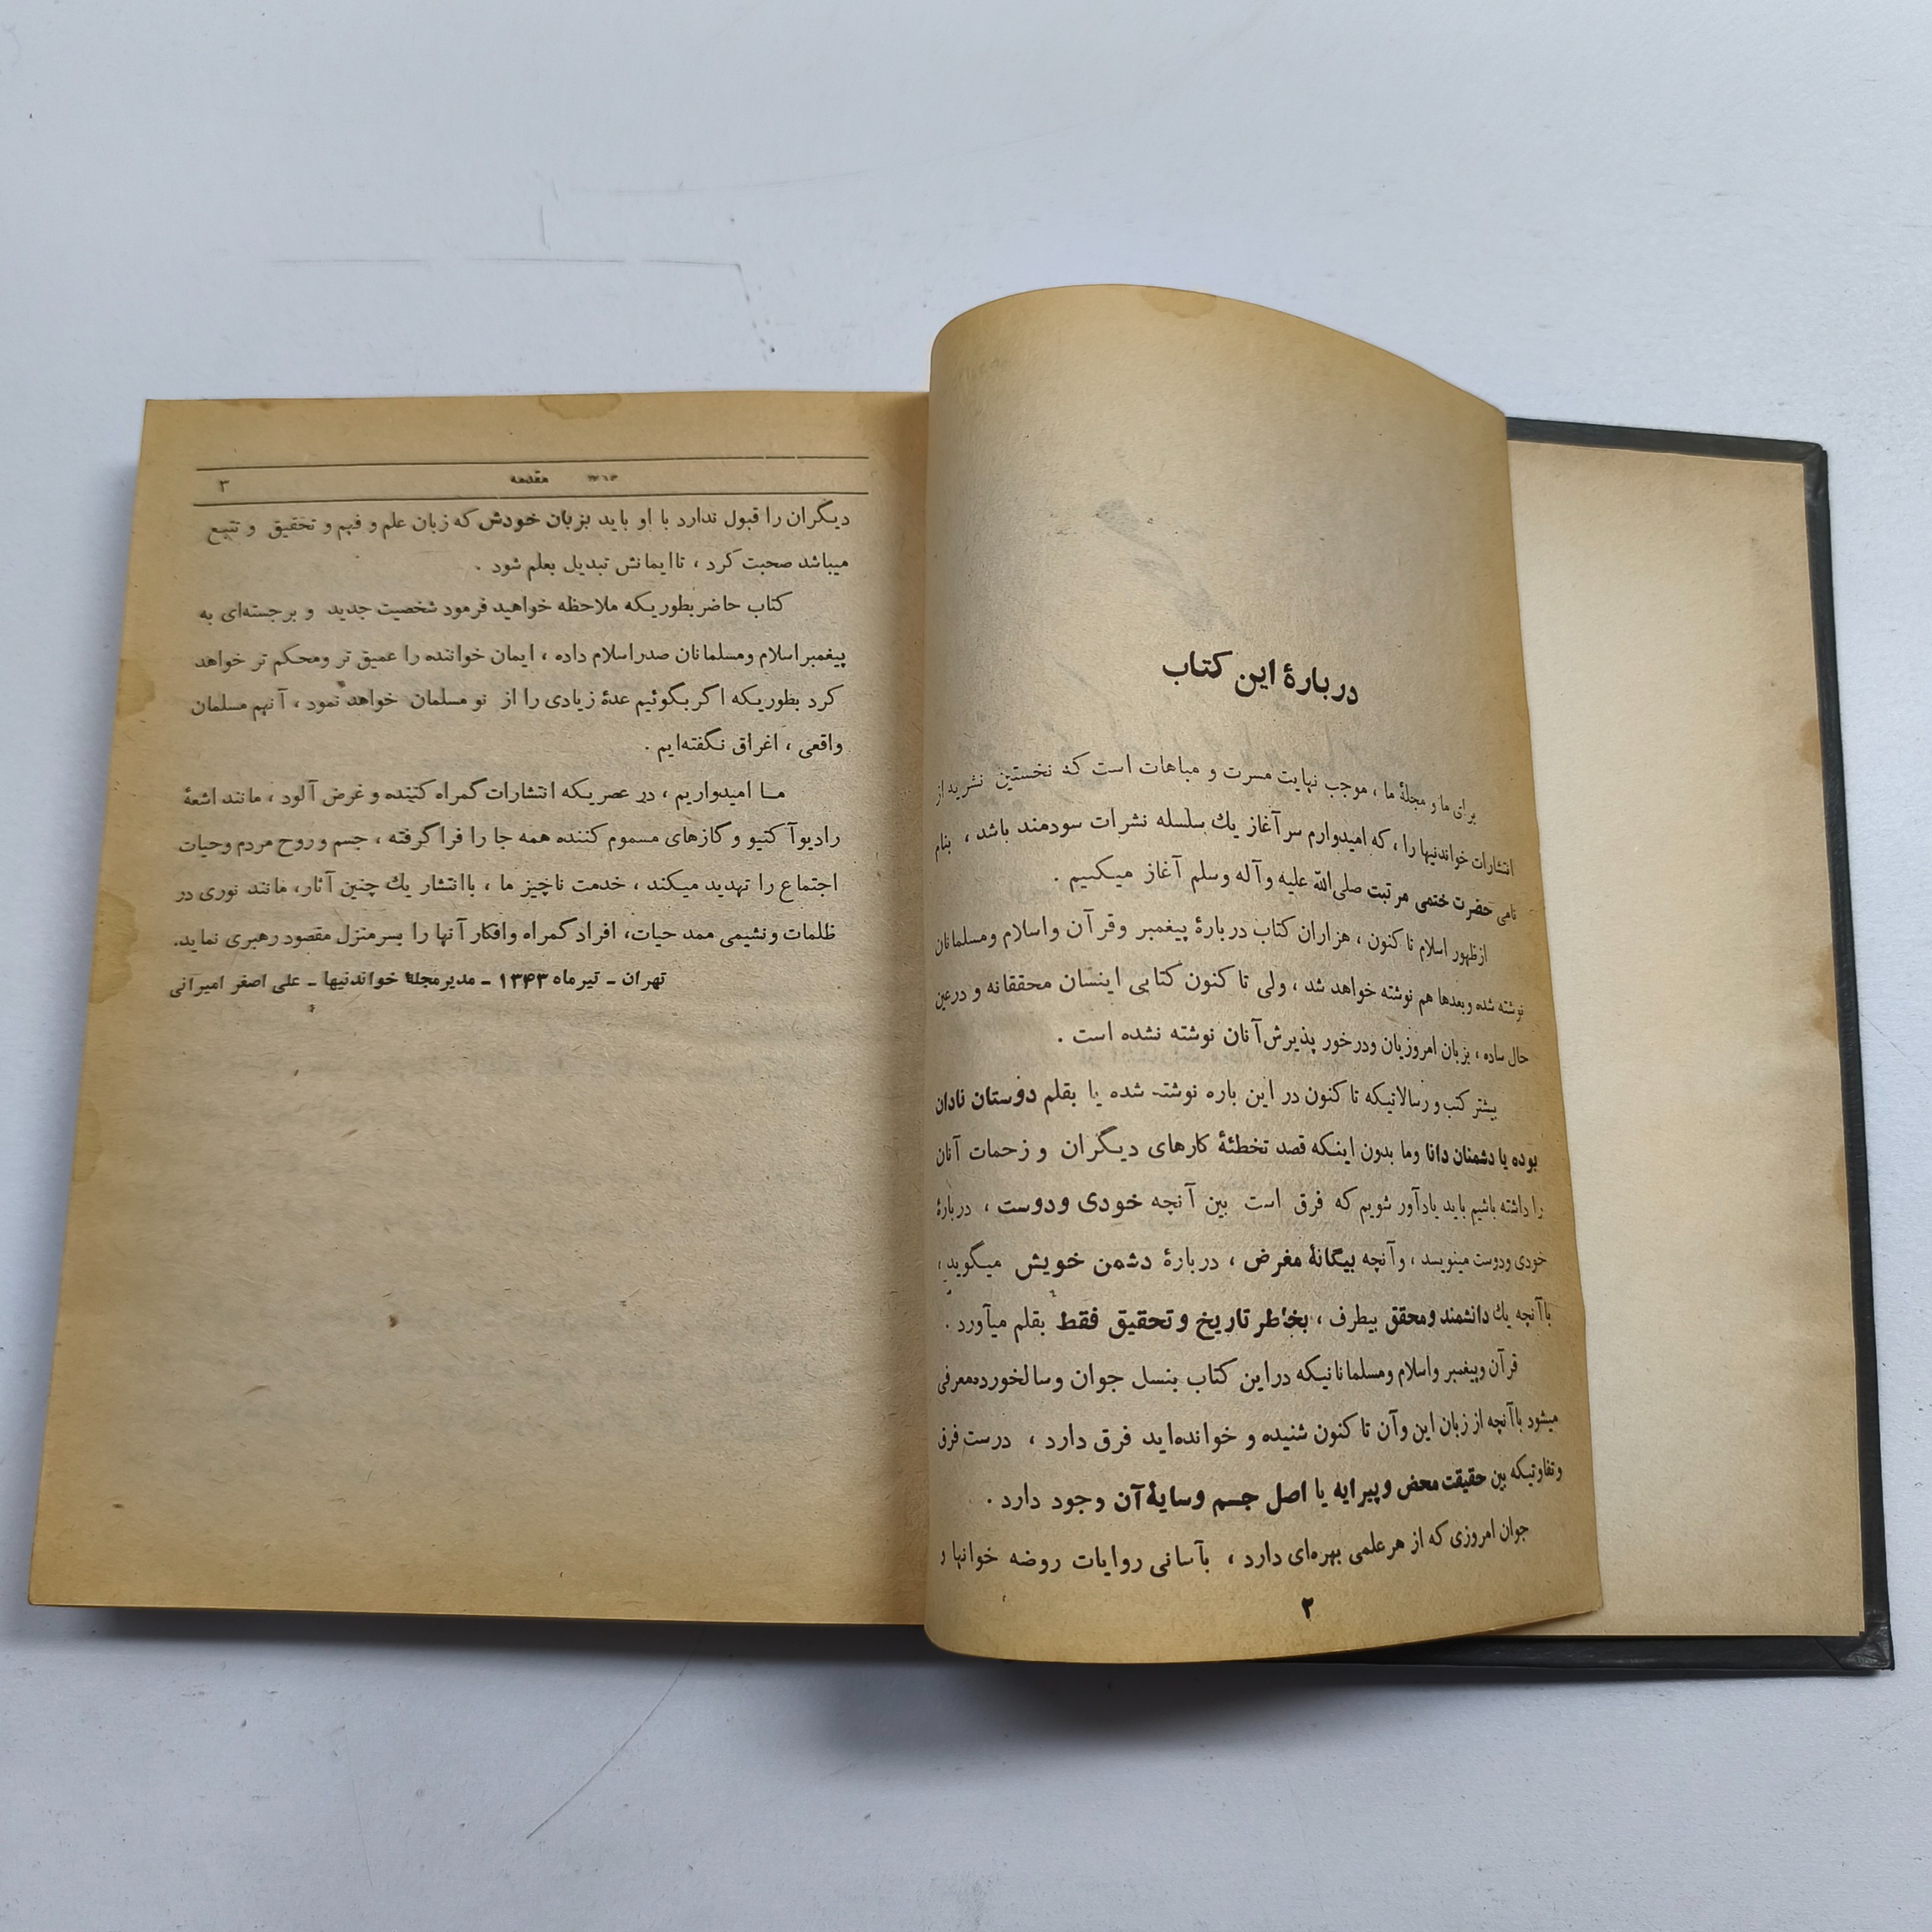 دربارهٔ این کتاب
برای ما و مجلهٔ ما ، موجب نهایت مسرت و مباهات است که نخستین نشریه از
انتشارات خواندنیها را ، که امیدوارم سر آغاز یك سلسله نشرات سودمند باشد ، بنام
نامی حضرت ختمی مرتبت صلی‌الله علیه وآله وسلم آغاز میکنیم .
ازظهور اسلام تاکنون ، هزاران کتاب دربارهٔ پیغمبر وقرآن واسلام ومسلمانان
نوشته شده وبعدها هم نوشته خواهد شد ، ولی تاکنون کتابی اینسان محققانه و درعین
حال ساده ، بزبان امروزیان ودرخور پذیرش آنان نوشته نشده است .
بیشتر کتب و رسالاتیکه تا کنون در این باره نوشته شده یا بقلم دوستان نادان
بوده یا دشمنان دانا وما بدون اینکه قصد تخطئهٔ کارهای دیگران و زحمات آنان
را داشته باشیم باید یادآور شویم که فرق است بین آنچه خودی ودوست ، دربارهٔ
خودی ودوست مینویسد ، وآنچه بیگانهٔ مغرض ، دربارهٔ دشمن خویش میگوید ،
باآنچه یك دانشمند ومحقق بیطرف ، بخاطر تاریخ و تحقیق فقط بقلم میآورد .
قرآن وپیغمبر واسلام ومسلمانانیکه دراین کتاب بنسل جوان وسالخورده‌معرفی
میشود باآنچه از زبان این وآن تاکنون شنیده و خوانده‌اید فرق دارد ، درست فرق
وتفاوتیکه بین حقیقت محض و پیرایه یا اصل جسم وسایهٔ آن وجود دارد .
جوان امروزی که از هرعلمی بهره‌ای دارد ، بآسانی روایات روضه خوانها و
۲
مقدمه ۳
دیگران را قبول ندارد با او باید بزبان خودش که زبان علم و فهم و تحقیق و تتبع
میباشد صحبت کرد ، تاایمانش تبدیل بعلم شود .
کتاب حاضر بطوریکه ملاحظه خواهید فرمود شخصیت جدید و برجسته‌ای به
پیغمبر اسلام ومسلمانان صدراسلام داده ، ایمان خواننده را عمیق تر ومحکم تر خواهد
کرد بطوریکه اگر بگوئیم عدهٔ زیادی را از نو مسلمان خواهد نمود ، آنهم مسلمان
واقعی ، اغراق نگفته‌ایم .
مـا امیدواریم ، در عصریکه انتشارات گمراه کننده و غرض آلود ، مانند اشعهٔ
رادیوآکتیو و گازهای مسموم کننده همه جا را فراگرفته ، جسم و روح مردم وحیات
اجتماع را تهدید میکند ، خدمت ناچیز ما ، باانتشار یك چنین آثار، مانند نوری در
ظلمات ونشیمی ممد حیات، افراد گمراه وافکار آنها را بسرمنزل مقصود رهبری نماید.
تهران ـ تیرماه ۱۳۴۳ ـ مدیرمجلهٔ خواندنیها ـ علی اصغر امیرانی